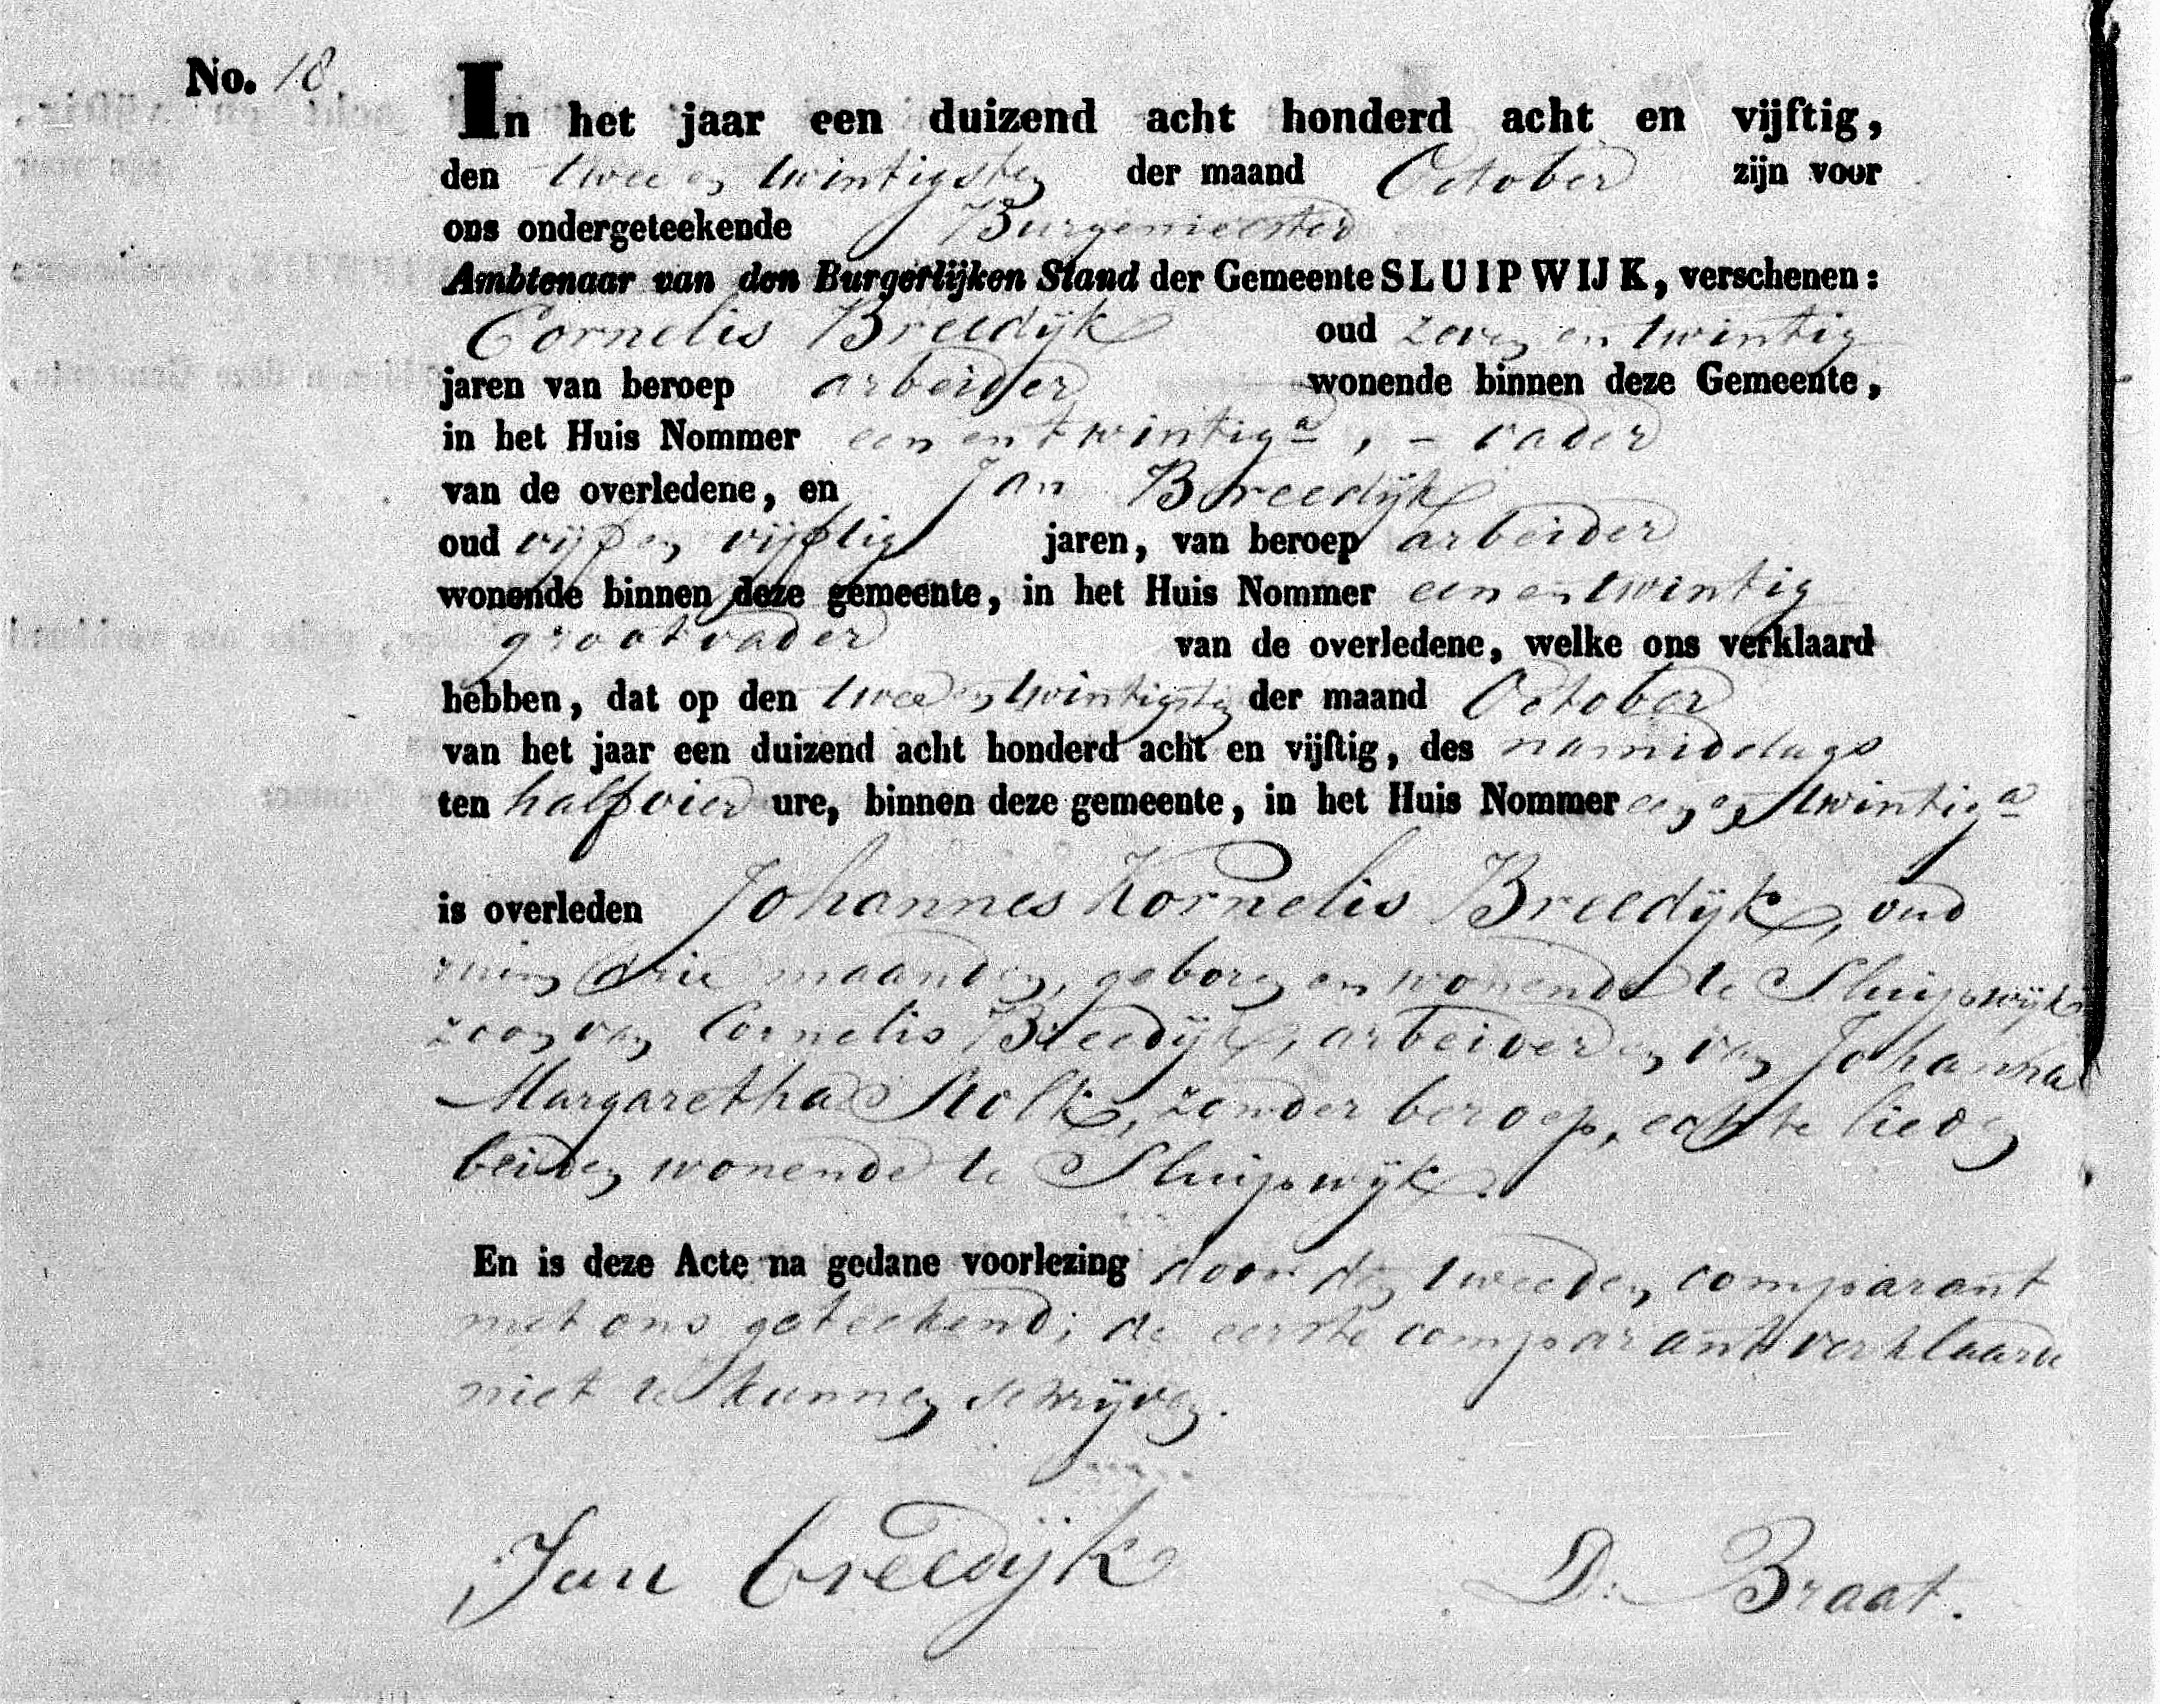 No. 18
In het jaar een duizend acht honderd acht en vijftig,
den twee en twintigsten der maand October zijn voor
ons ondergeteekende Burgemeester
Ambtenaar van den Burgerlijken Stand der Gemeente SLUIPWIJK, verschenen:
Cornelis Breedijk oud zeven en twintig
jaren van beroep arbeider wonende binnen deze Gemeente,
in het Huis Nommer een en twintig a, – vader
van de overledene, en Jan Breedijk
oud vijf en vijftig jaren, van beroep arbeider
wonende binnen deze gemeente, in het Huis Nommer een en twintig
grootvader van de overledene, welke ons verklaard
hebben, dat op den twee en twintigsten der maand October
van het jaar een duizend acht honderd acht en vijftig, des namiddags
ten half vier ure, binnen deze gemeente, in het Huis Nommer een en twintig a
is overleden Johannes Kornelis Breedijk, oud
ruim drie maanden, geboren en wonende te Sluipwijk,
zoon van Cornelis Breedijk, arbeider en van Johanna
Margaretha Stolk, zonder beroep, echte lieden
beiden wonende te Sluipwijk.
En is deze Acte na gedane voorlezing door den tweeden comparant
met ons geteekend; de eerste comparant verklaarde
niet te kunnen schrijven.
Jan breedijk D. Braat.